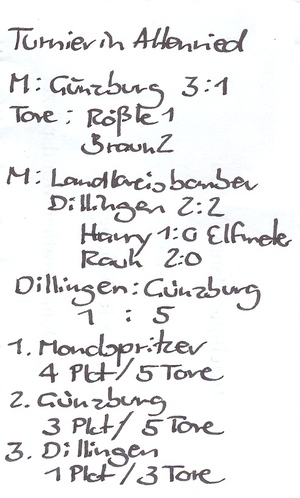 Turnier in Attenried
M: Günzburg 3:1
Tore: Rößle 1
Braun 2
M: Landkreisbomber
Dillingen 2:2
Harry 1:0 Elfmeter
Rauh 2:0
Dillingen: Günzburg
1 : 5
1. Mondspritzer
4 Pkt/5 Tore
2. Günzburg
3 Pkt/5 Tore
3. Dillingen
1 Pkt/3 Tore